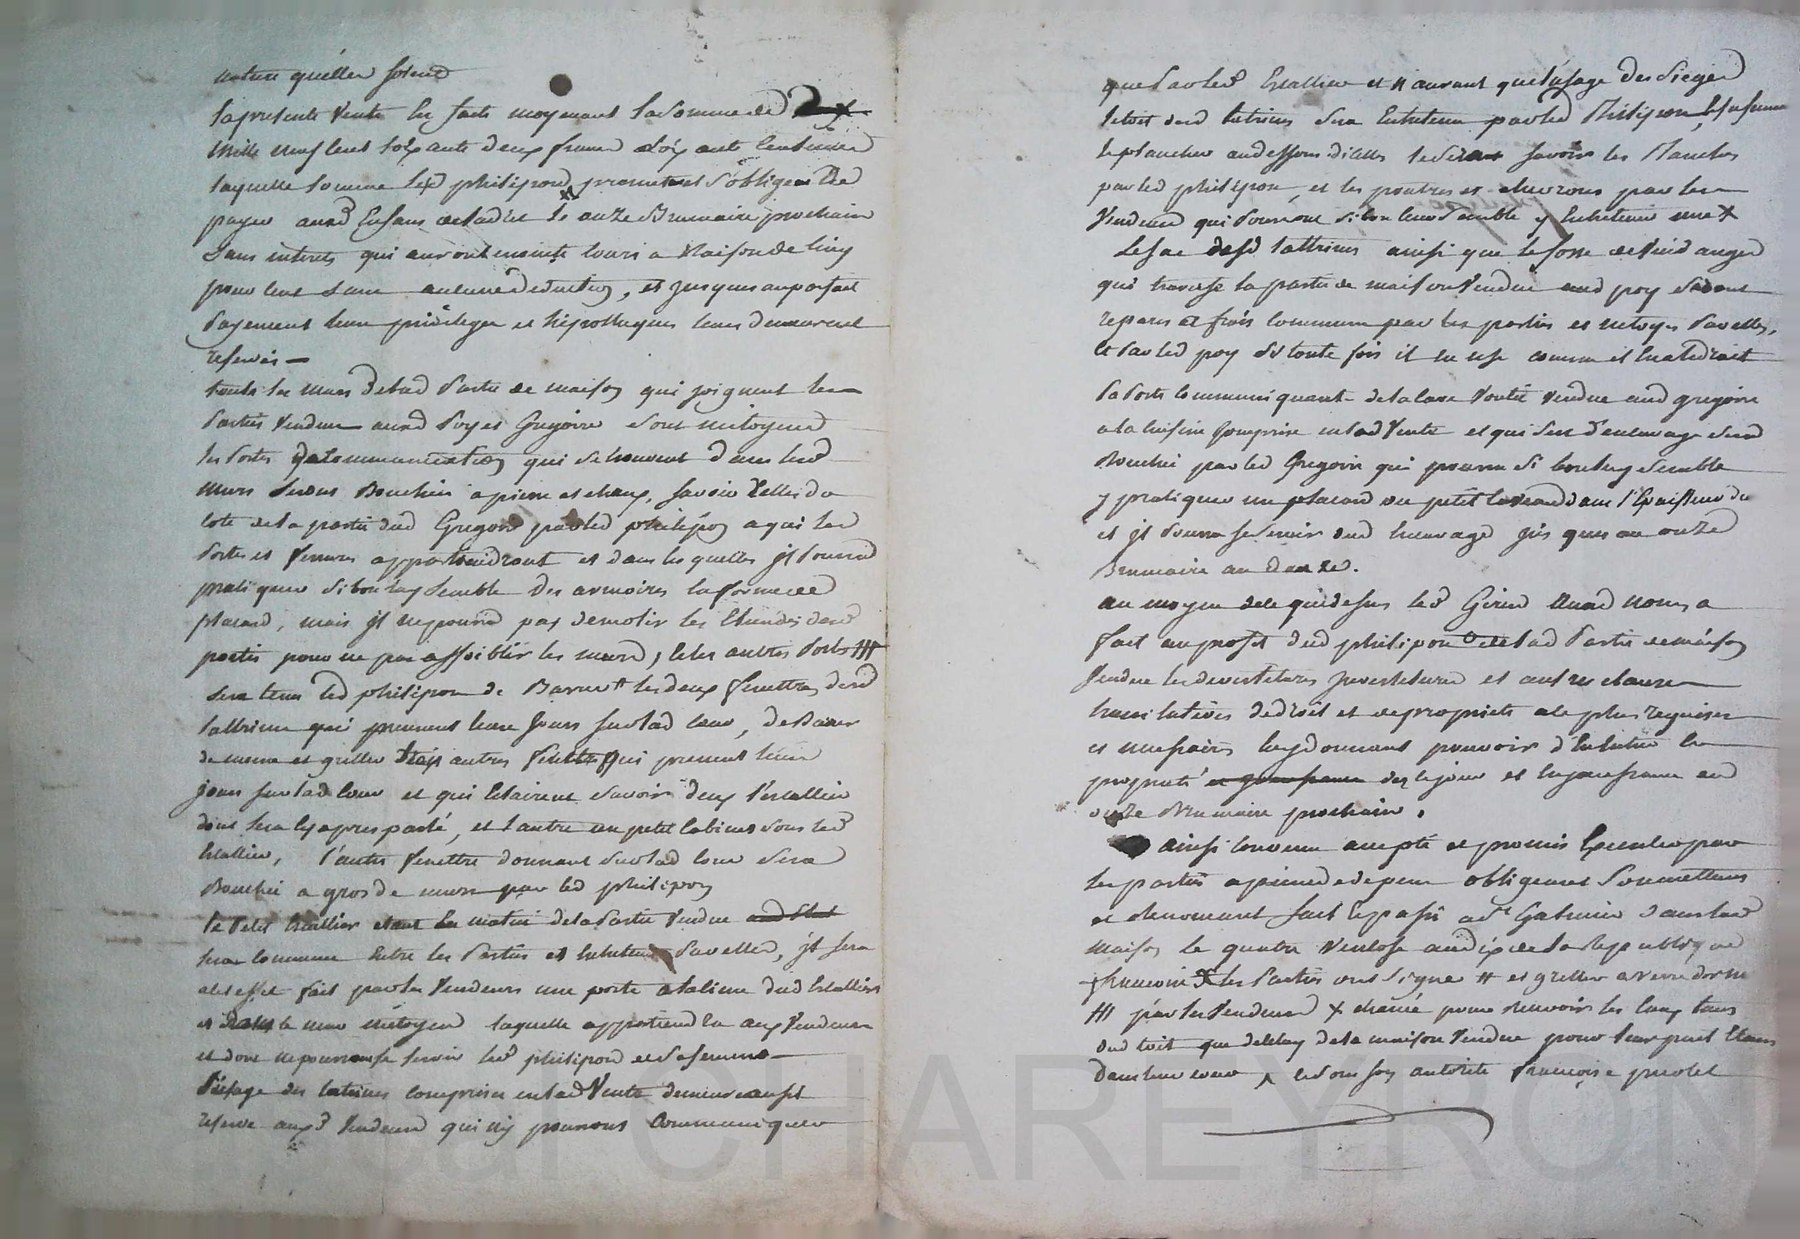 nature quelles soient
la presente vente est faite moyenant la somme de
mille neuf cent soixante deux francs soixante centimes
laquelle somme led philipon promet et s'oblige de
payer auxd enfans de ladite le onze Brumaire prochain
sans interets qui auront ensuite cours a raison de cinq
pour cent sans aucune deduction, et jusques au parfait
payement leurs privileges et hipotheques leurs demeurent
reservés
touts les murs de lad partie de maison qui joignent les
parties vendues auxd Poy et Gregoire sont mitoyens
les portes de communication qui se trouvent dans lesd
murs seront Bouchées a pierre et chaux, savoir celles du
cote de la partie dud Gregoire par led philipon a qui les
portes et ferrures appartiendront et dans lesquelles il pourra
pratiquer si bon luy semble des armoires en forme de
placard, mais il ne pourra pas demolir les
portes pour ne pas affoiblir les murs, et les autres portes ###
sera tenu led philipon de Barrer # les deux fenettres desd
lattrines qui prennent leurs jours sur lad cour, de Barrer
de meme et griller trois autres fenettres qui prennent leurs
jours sur lad cour et qui eclairent savoir deux l'escallier
dont sera cy apres parlé, et l'autre un petit cabinet sous led
escallier, l'autre fenettre donnant sur lad cour sera
Bouchée a gros de murs par led philipon
le petit escallier etant en moitié de la partie vendue
sera commun entre les parties et entretenu par elles, il sera
a cet effet fait par les vendeurs une porte a la cime dud escallier
et dans le mur mitoyen laquelle appartiendra aux vendeurs
et dont ne pourront se servir led philipon et sa femme
l'usage des latrines comprises en lad vente demeure aussi
reservé aux vendeurs qui n'y pourront communiquer
que par led escallier et n'auront que l'usage des sieges
le toit desd latrines sera entretenu par led Philipon, et sa femme
le plancher au dessous d'icelles le sera savoir les planches
par led philipon, et les poutres et chevrons par les
vendeurs qui pourront si bon leur semble y entretenir une x
Le sac desd lattrines ainsi que la fosse de vuidanges
qui traverse la partie de maison vendue aud poy seront
reparés a frais communs par les parties et netoyés par elles,
et par led poy si toute fois il en use comme il en a le droit
la porte communiquante de la cave voutée vendue aud gregoire
a la cuisine comprise en lad vente et qui sert d'encavage sera
Bouchée par led Gregoire qui pourra si bon luy semble
y pratiquer un placard ou petit dans l'epaisseur du
et il pourra se servir dud encavage jusques au onze
Brumaire an douze.
au moyen de ce que dessus led Girard auxd noms a
fait au profit dud philipon de lad partie de maison
vendue les devestitures investitures et autres clauses
translatives de droit et de propriété les plus requises
et necessaires luy donnant pouvoir d'en
propriété et jouissance des ce jour et la jouissance aud
onze Brumaire prochain.
ainsi convenu accepté et promis executer par
les parties a peine de depens obligeant soumettant
et renonçant fait et passé a Gabriac dans lad
maison le quatre ventose an dix de la Republique
francoise x les parties ont signé # et griller a verre dormant
### par les vendeurs x chenée pour recevoir les eaux tant
dud toit que de celuy de la maison vendue pour leur
dans leur cour et sous son autorité françoise
CHAREYRON